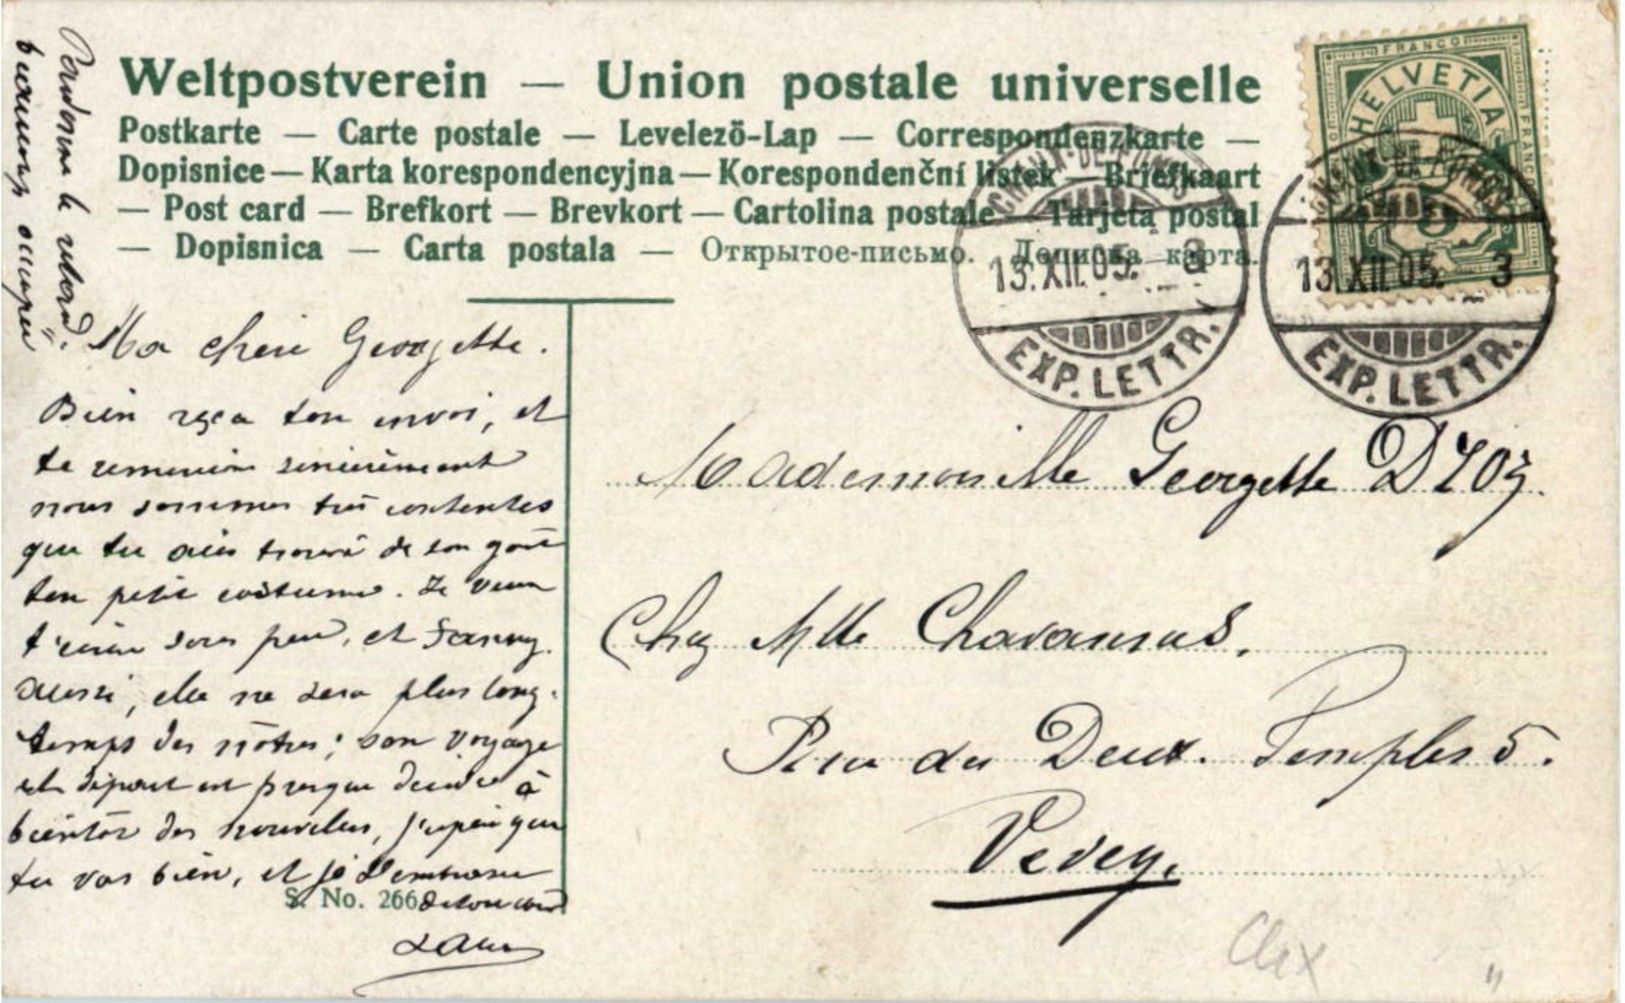 Weltpostverein — Union postale universelle
Postkarte — Carte postale — Levelező-Lap — Correspondenzkarte —
Dopisnice — Karta korespondencyjna — Korespondenční lístek — Briefkaart
— Post card — Brefkort — Brevkort — Cartolina postale — Tarjeta postal
— Dopisnica — Carta postala — Открытое-письмо. Дописна карта.
FRANCO
HELVETIA
FRANCO
5
CHAUX-DE-FONDS
13.XII.05. 3
EXP. LETTR.
CHAUX-DE-FONDS
13.XII.05. 3
EXP. LETTR.
le retard.
beaucoup occupée
Ma chère Georgette.
Bien reçu ton envoi, et
te remercie sincèrement
nous sommes très contentes
que tu aies trouvé de ton goût
ton petit costume. Je veux
t'écrire sous peu, et Fanny
aussi, elle ne sera plus long-
temps des nôtres; son voyage
et départ est presque décidé à
bientôt des nouvelles, j'espère que
tu vas bien, et je t'embrasse
de tout cœur
S. No. 266
Mademoiselle Georgette
Chez Mlle Chavannes.
Rue des Deux. Temples 5.
Vevey.